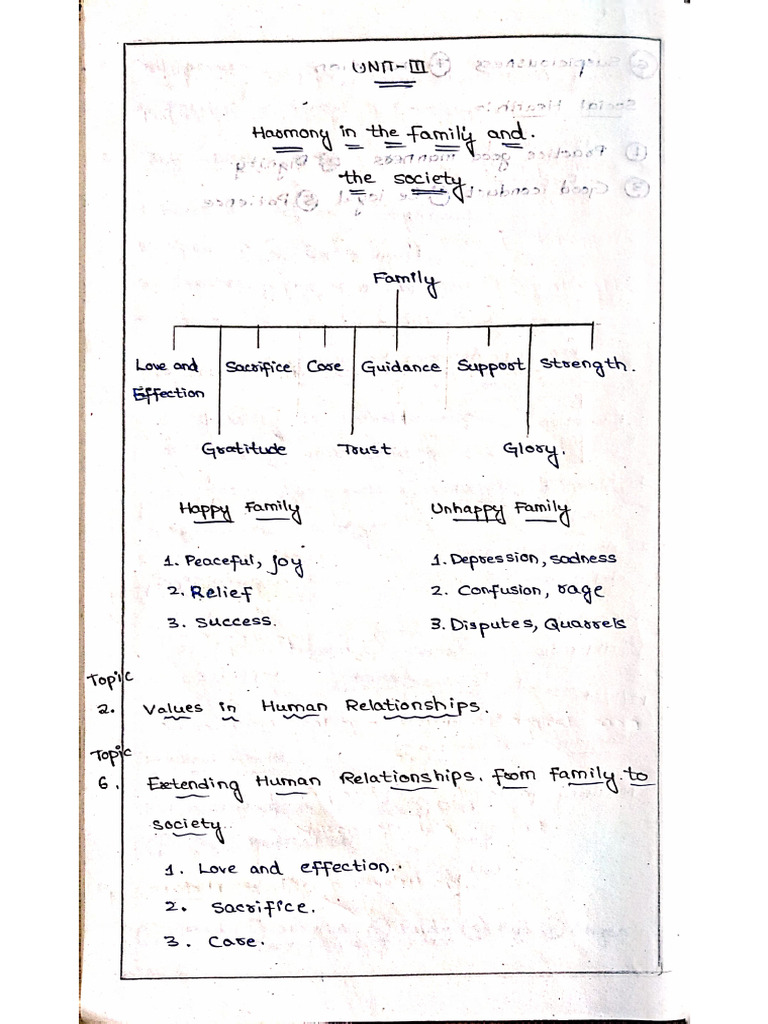 UNIT-III
Harmony in the family and.
the society
Family
Love and Sacrifice Care Guidance Support Strength.
Effection
Gratitude Trust Glory.
Happy Family Unhappy Family
1. Peaceful, joy 1. Depression, sadness
2. Relief 2. Confusion, rage
3. Success. 3. Disputes, Quarrels
Topic
2. Values in Human Relationships.
Topic
6. Extending Human Relationships. from family to
society.
1. Love and effection.
2. Sacrifice.
3. Care.